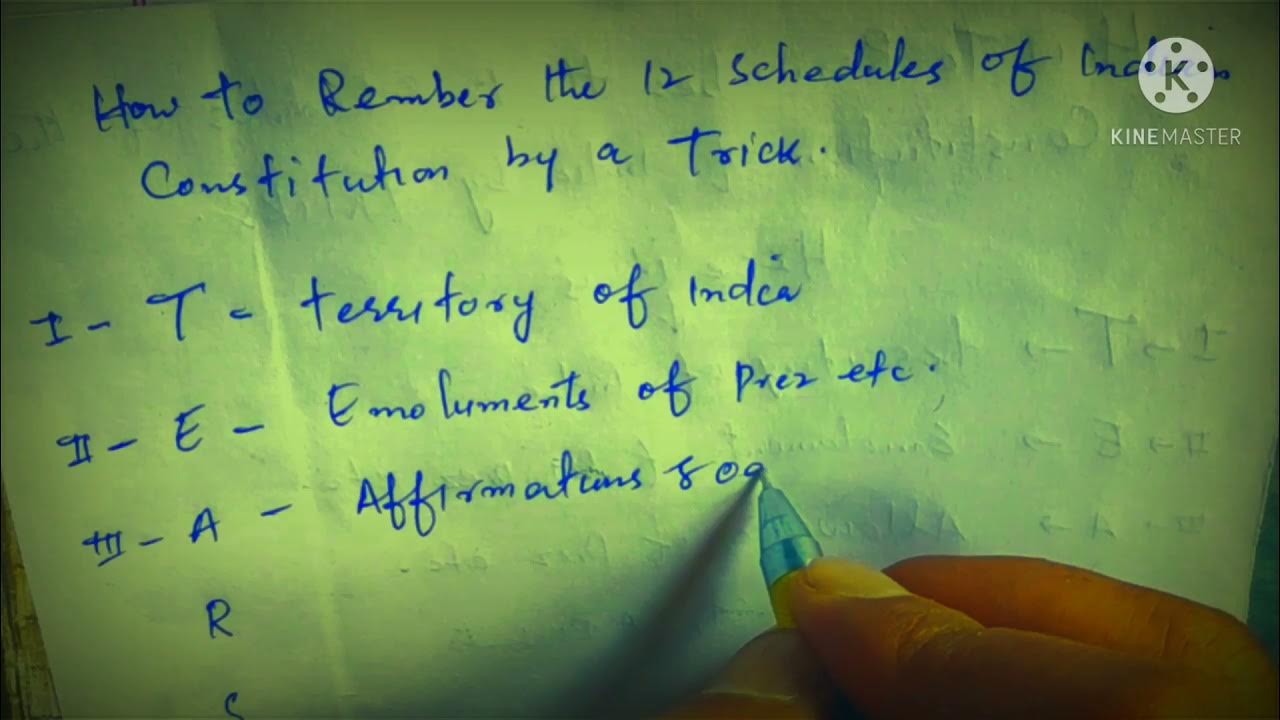 How to Rember the 12 schedules of Indian
Constitution by a Trick.
K
KINEMASTER
I - T - territory of India
II - E - Emoluments of Prez etc.
III - A - Affirmations & oa
R
S